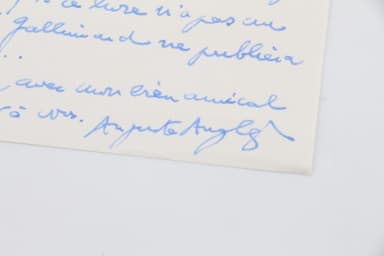 ce livre n'a pas un
Gallimard ne publiera
..
avec mon bien amical
à vos.
Auguste Anglès